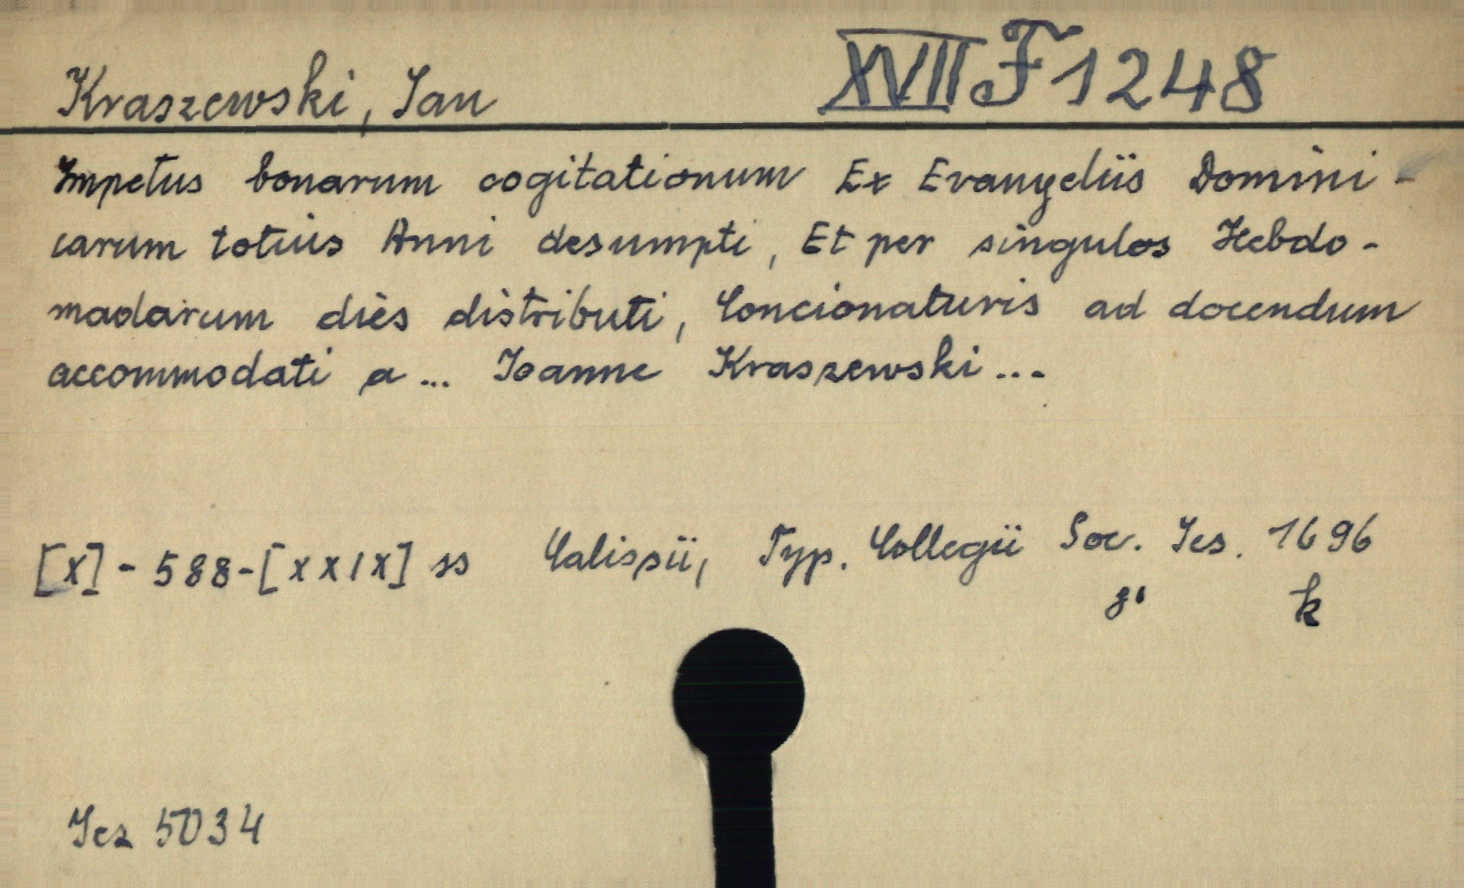 Kraszewski, Jan
XVII F 1248
Impetus bonarum cogitationum Ex Evangeliis Domini-
carum totius Anni desumpti, Et per singulos Hebdo-
madarum dies distributi, Concionaturis ad docendum
accommodati a ... Ioanne Kraszewski ...
[X] - 588 - [XXIX] ss Calissii, Typ. Collegii Soc. Jes. 1696
8° k
Jez 5034